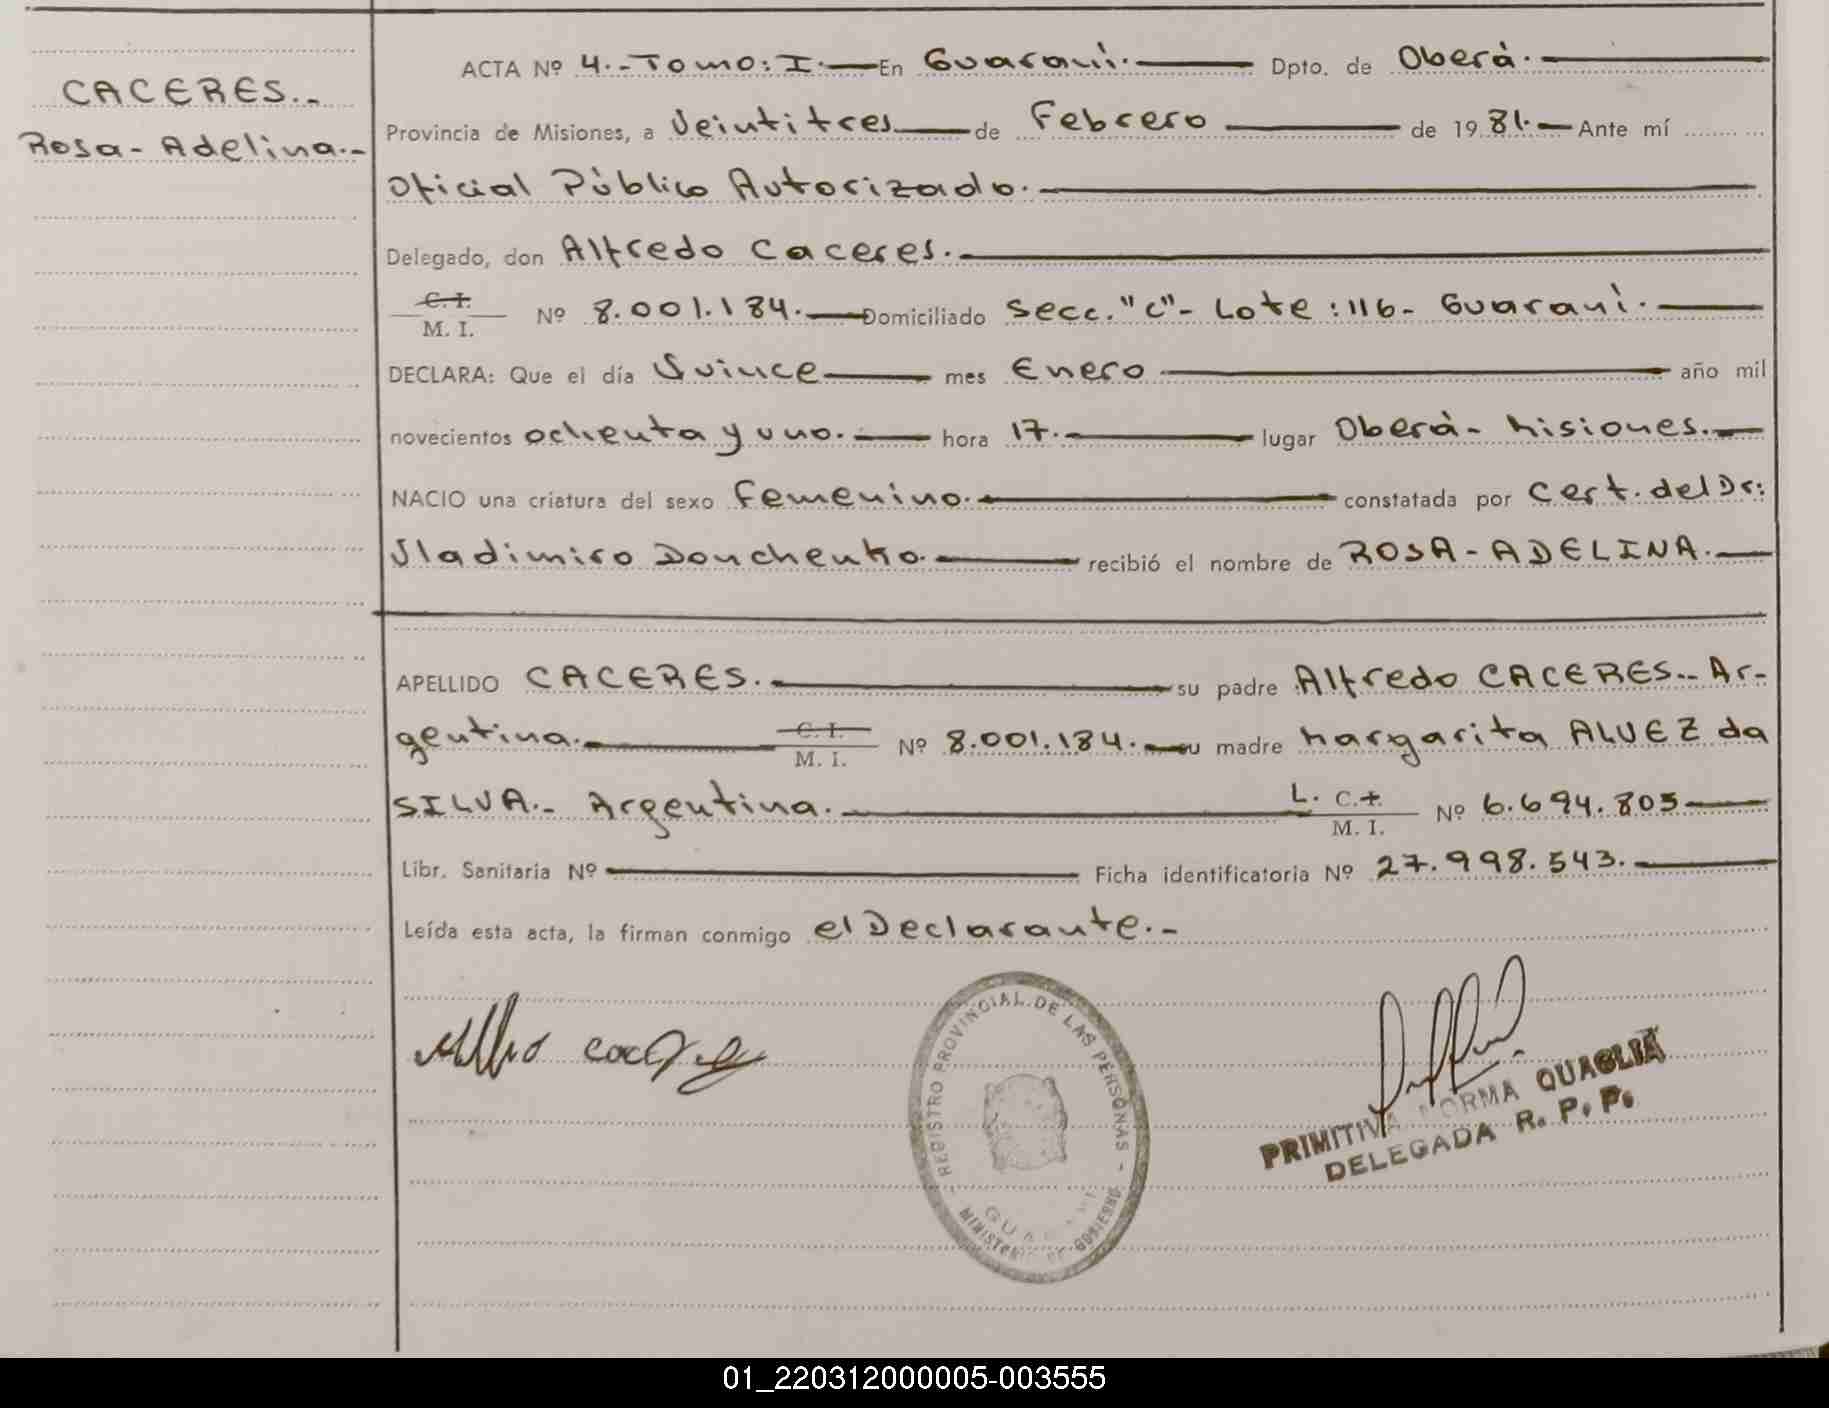 CACERES.-
Rosa-Adelina.-
ACTA Nº 4.-Tomo: I. En Guaraní. Dpto. de Oberá.
Provincia de Misiones, a Veintitres de Febrero de 1981. Ante mí
Oficial Público Autorizado.
Delegado, don Alfredo Caceres.
C. I.
M. I. Nº 8.001.184. Domiciliado Secc."C"- Lote:116- Guaraní.
DECLARA: Que el día Quince mes Enero año mil
novecientos ochenta y uno. hora 17. lugar Oberá- Misiones.
NACIO una criatura del sexo Femenino. constatada por Cert. del Dr:
Vladimiro Donchenko. recibió el nombre de ROSA-ADELINA.
APELLIDO CACERES. su padre Alfredo CACERES.- Ar-
gentina. C. I.
M. I. Nº 8.001.184. su madre Margarita ALVEZ da
SILVA.- Argentina. L. C.I.
M. I. Nº 6.694.805
Libr. Sanitaria Nº Ficha identificatoria Nº 27.998.543.
Leída esta acta, la firman conmigo el Declarante.-
REGISTRO PROVINCIAL DE LAS PERSONAS -
MINISTERIO DE GOBIERNO
PRIMITIVA NORMA QUAGLIA
DELEGADA R. P. P.
01_220312000005-003555